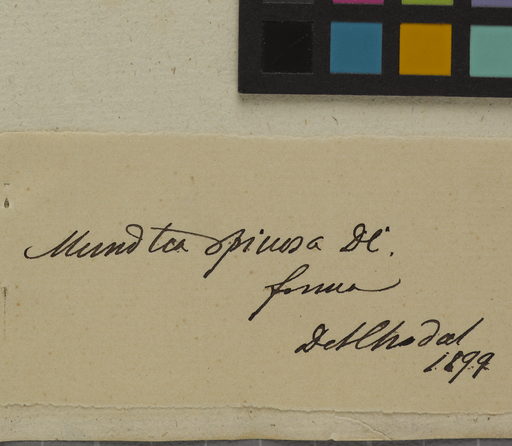 Mundtia spinosa DC.
forma
Det Chodat
1899